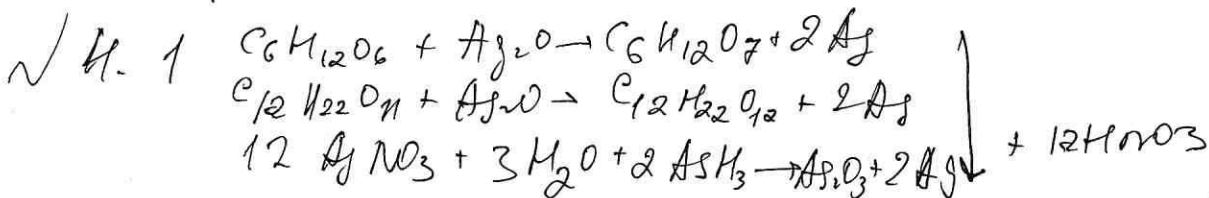 № 4.1 C₆H₁₂O₆ + Ag₂O → C₆H₁₂O₇ + 2 Ag
C₁₂H₂₂O₁₁ + Ag₂O → C₁₂H₂₂O₁₂ + 2 Ag
12 AgNO₃ + 3 H₂O + 2 AsH₃ → As₂O₃ + 2 Ag ↓ + 12HNO₃